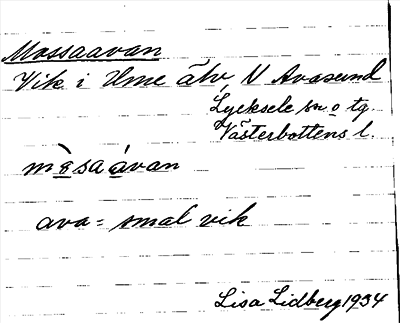 Mossaavan
Vik i Ume älv, V Avasund
Lycksele sn o tg.
Västerbottens l.
mòsaávan
ava = smal vik
Lisa Lidberg 1934